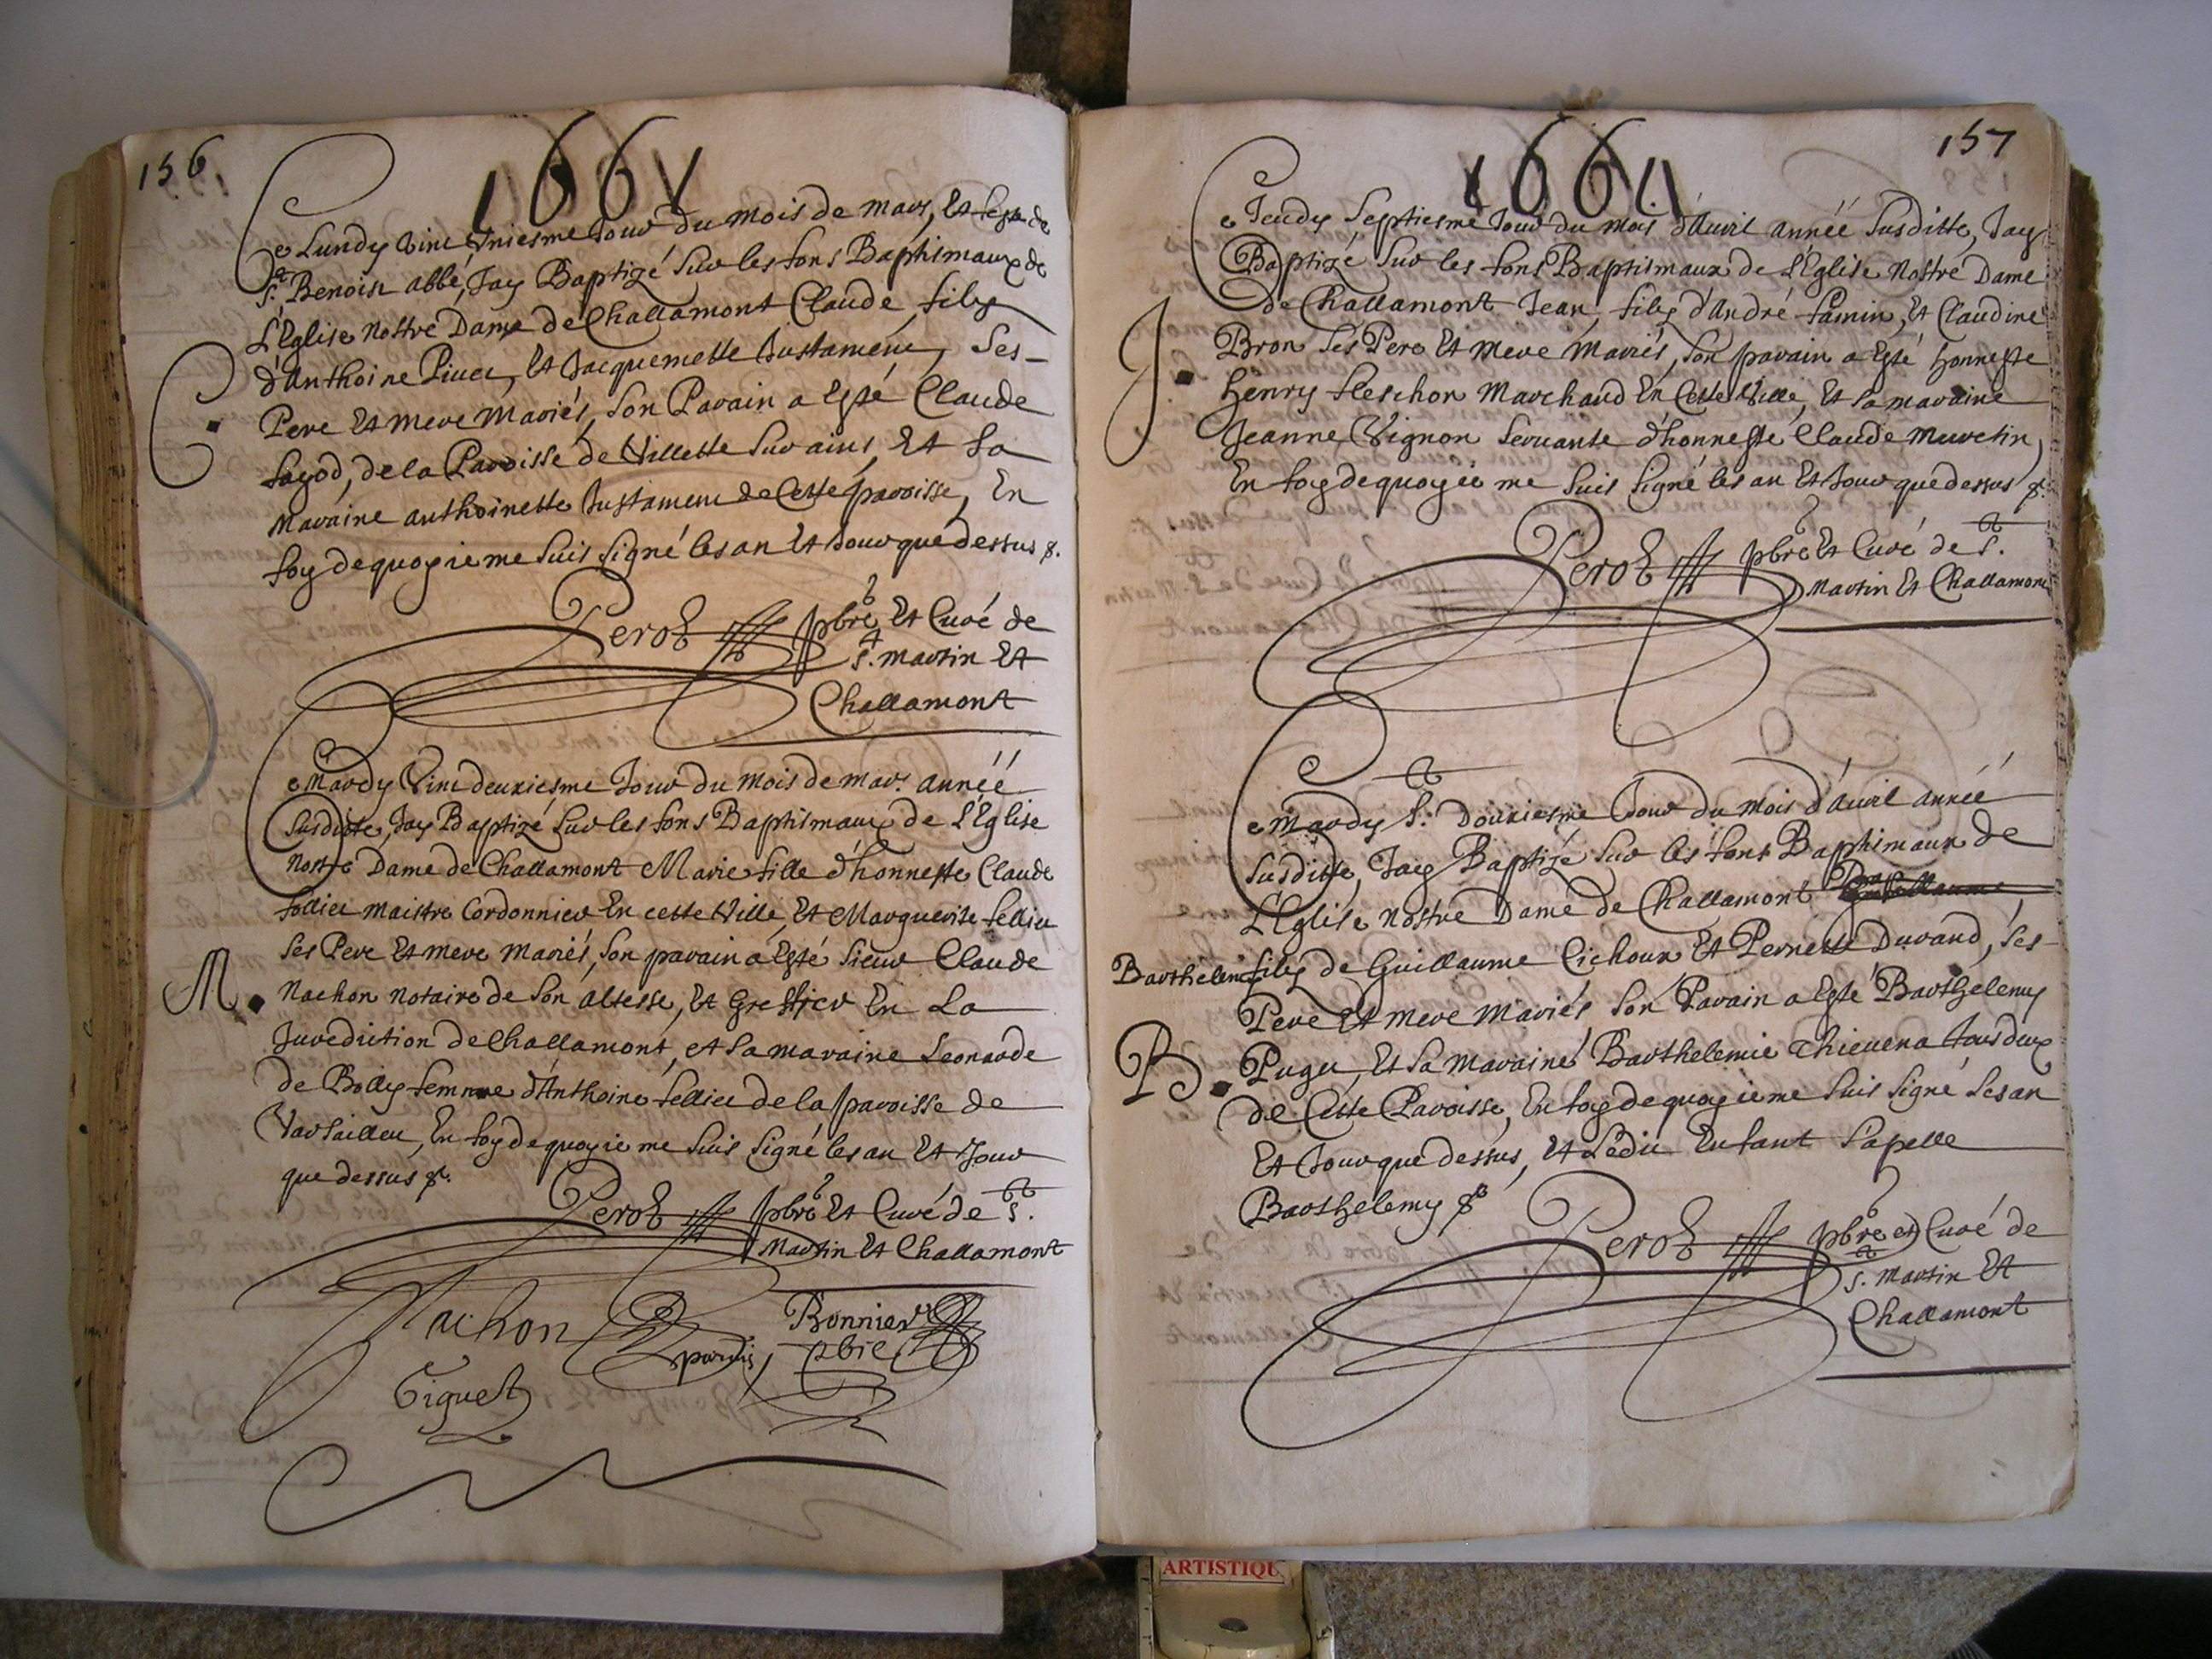 156
1661
Ce Lundy Vint Uniesme Jour du mois de mars, Et feste de
St. Benoist abbé, Jay Baptizé Sur les fons Baptismaux de
L'Eglise nostre Dame de Challamont Claude, filz
d'Anthoine Piuet, Et Jacquemette Justament, Ses
Pere Et mere Mariés, Son Parain a Esté Claude
fayod, de la Paroisse de Villette Sur ains, Et Sa
Maraine anthoinette Justament de Cette paroisse, En
foy de quoy ie me Suis Signé les an Et Jour que dessus &.
C.
Perot pbre Et Curé de
St. martin Et
Challamont
Ce Mardy Vint deuxiesme Jour du mois de mars année
Susditte, Jay Baptizé Sur les fons Baptismaux de L'Eglise
nostre Dame de Challamont Marie fille d'honneste Claude
follier maistre Cordonnier En cette Ville, Et Marguerite fellier
Ses Pere Et mere Mariés, Son parain a Esté Sieur Claude
M. Nachon notaire de Son altesse, Et Greffier En La
Jurediction de Challamont, et Sa maraine Leonarde
de Bolly femme d'Anthoine fellier de la paroisse de
Varsailleu, En foy de quoy ie me Suis Signé les an Et Jour
que dessus &.
Perot pbre Et Curé de St.
Martin Et Challamont
Nachon parain, Bonnier
pbre
Tiguet
157
1661
Ce Jeudy Septiesme Jour du mois d'Auril année Susditte, Jay
Baptizé Sur les fons Baptismaux de L'Eglise nostre Dame
de Challamont Jean, filz d'André famin, Et Claudine
J. Bron Ses Pere Et mere Mariés, Son parain a Esté honneste
henry fleschon Marchand En Cette Ville, Et Sa maraine
Jeanne Vignon Seruante d'honneste Claude Muretin,
En foy de quoy ie me Suis Signé les an Et Jour que dessus &.
Perot pbre Et Curé de St.
Martin Et Challamont
Ce Mardy St. Douxiesme Jour du mois d'auril année
Susditte, Jay Baptizé Sur les fons Baptismaux de
L'Eglise nostre Dame de Challamont
Barthelemy filz de Guillaume Cichoux Et Pernette Durand, Ses
Pere Et mere Mariés Son Parain a Esté Barthelemy
B. Puget, Et Sa Maraine Barthelemie Thieuena tous deux
de Cette Paroisse, En foy de quoy ie me Suis Signé Les an
Et Jour que dessus, et Ledit Enfant S'apelle
Barthelemy &
Perot pbre et Curé de
St. Martin Et
Challamont
ARTISTIQU